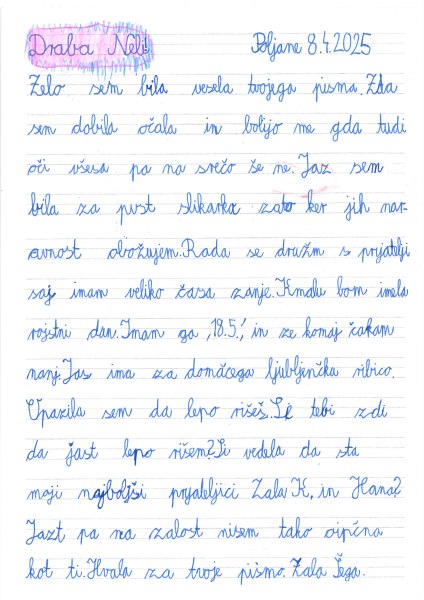 Draba Neli Poljane 8.4.2025
Zelo sem bila vesela tvojega pisma. Zda
sem dobila očala in bolijo me gda tudi
oči všesa pa na srečo še ne. Jaz sem
bila za pust slikarka zato ker jih nar-
avnost obožujem. Rada se družm s prjatelji
saj imam veliko časa zanje. Kmalu bom imela
rojstni dan. Imam ga ,18.5.', in že komaj čakam
nanj. Jas ima za domačega ljubljenčka ribico.
Upazila sem da lepo rišeš. Se tebi zdi
da jast lepo rišem? Si vedela da sta
moji najboljši prjateljici Zala K, in Hana?
Jazt pa na zalost nisem tako
kot ti. Hvala za tvoje pismo. Zala Šega.